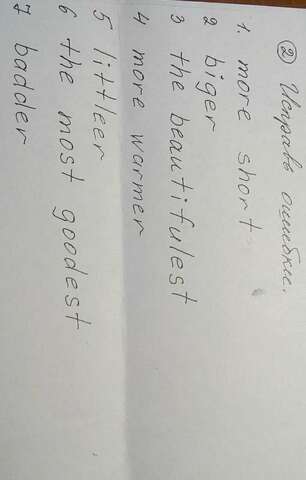 ② Исправь ошибки.
1. more short
2 biger
3 the beautifulest
4 more warmer
5 littleer
6 the most goodest
7 badder